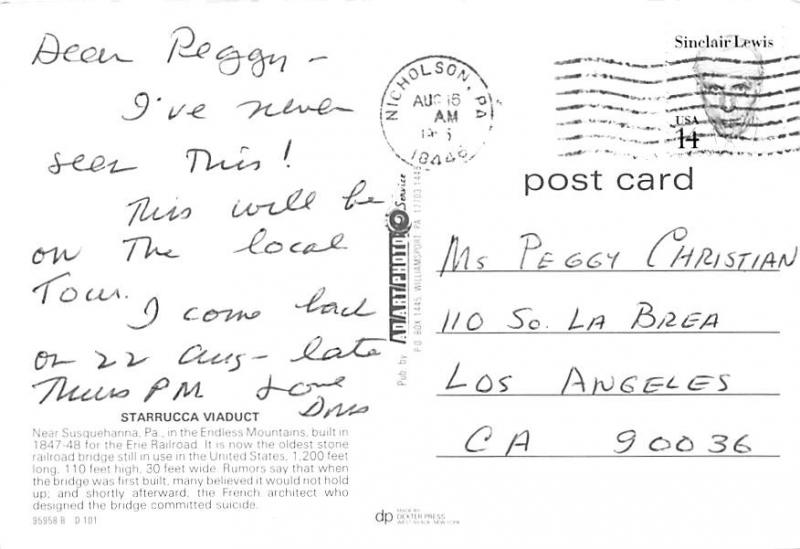 Dear Peggy -
I've never
seen This!
This will be
on The local
Tour.
I come back
on 22 Aug - late
Thurs PM Love
STARRUCCA VIADUCT
Near Susquehanna, Pa., in the Endless Mountains, built in
1847-48 for the Erie Railroad. It is now the oldest stone
railroad bridge still in use in the United States, 1,200 feet
long, 110 feet high, 30 feet wide. Rumors say that when
the bridge was first built, many believed it would not hold
up; and shortly afterward, the French architect who
designed the bridge committed suicide.
95958 B D 101
NICHOLSON, PA
AUG 16
AM
18446
Pub. by AD/ART/PHOTO Service
P.O. BOX 1445, WILLIAMSPORT, PA. 17703-1445
Sinclair Lewis
USA
14
post card
Ms PEGGY CHRISTIAN
110 So. LA BREA
LOS ANGELES
CA 90036
dp
MADE BY
DEXTER PRESS
WEST NYACK, NEW YORK